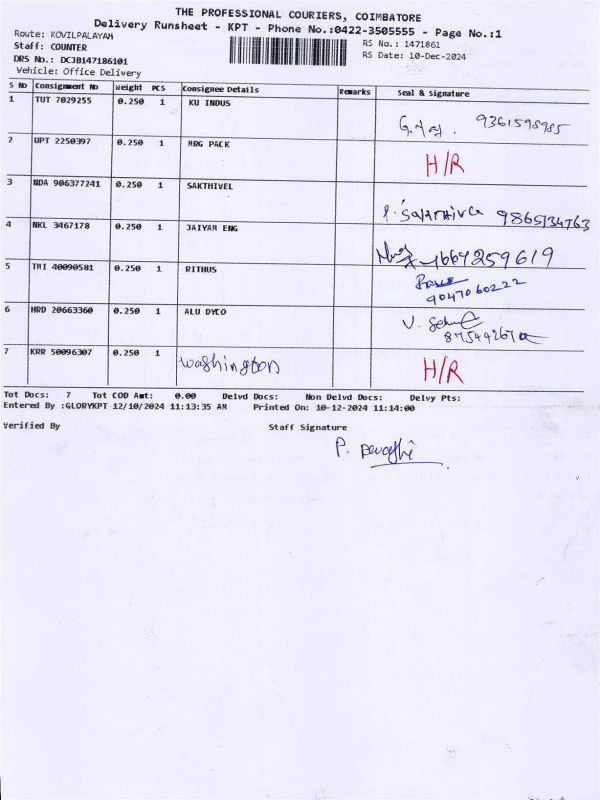 THE PROFESSIONAL COURIERS, COIMBATORE
Delivery Runsheet - KPT - Phone No.:0422-3505555 - Page No.:1
Route: KOVILPALAYAM
RS No.: 1471861
Staff: COUNTER
RS Date: 10-Dec-2024
DRS No.: DCJB147186101
Vehicle: Office Delivery
S No Consignment No Weight PCS Consignee Details Remarks Seal & Signature
1 TUT 7029255 0.250 1 KU INDUS
9361598985
2 UPT 2250397 0.250 1 MRG PACK
H/R
3 NDA 906377241 0.250 1 SAKTHIVEL
9865134763
4 NKL 3467178 0.250 1 JAIYAM ENG
5 TMI 40090581 0.250 1 RITHUS
9047060222
6 HRD 20663360 0.250 1 ALU DYCO
7 KRR 50096307 0.250 1 Washington
H/R
Tot Docs: 7 Tot COD Amt: 0.00 Delvd Docs: Non Delvd Docs: Delvy Pts:
Entered By :GLORYKPT 12/10/2024 11:13:35 AM Printed On: 10-12-2024 11:14:00
Verified By Staff Signature